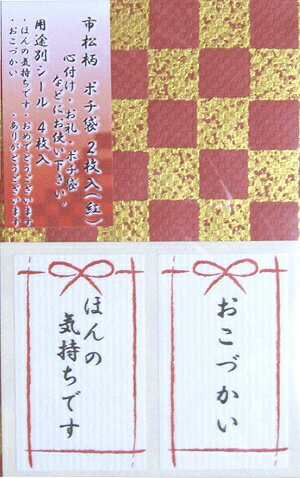 市松柄 ポチ袋 2枚入(紅)
心付け・お礼・ポチ袋
などにお使い下さい。
用途別シール 4枚入
・ほんの気持ちです・おめでとうございます
・おこづかい ・ありがとうございます
おこづかい
ほんの
気持ちです